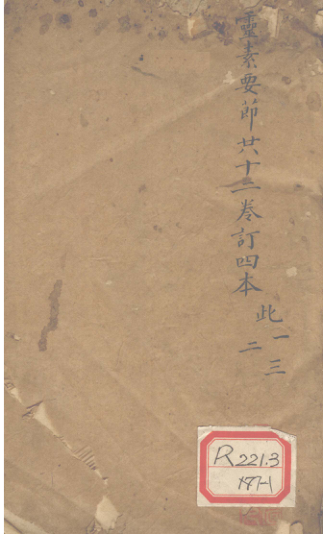 靈素要節共十二卷訂四本
此一
二三
R221.3